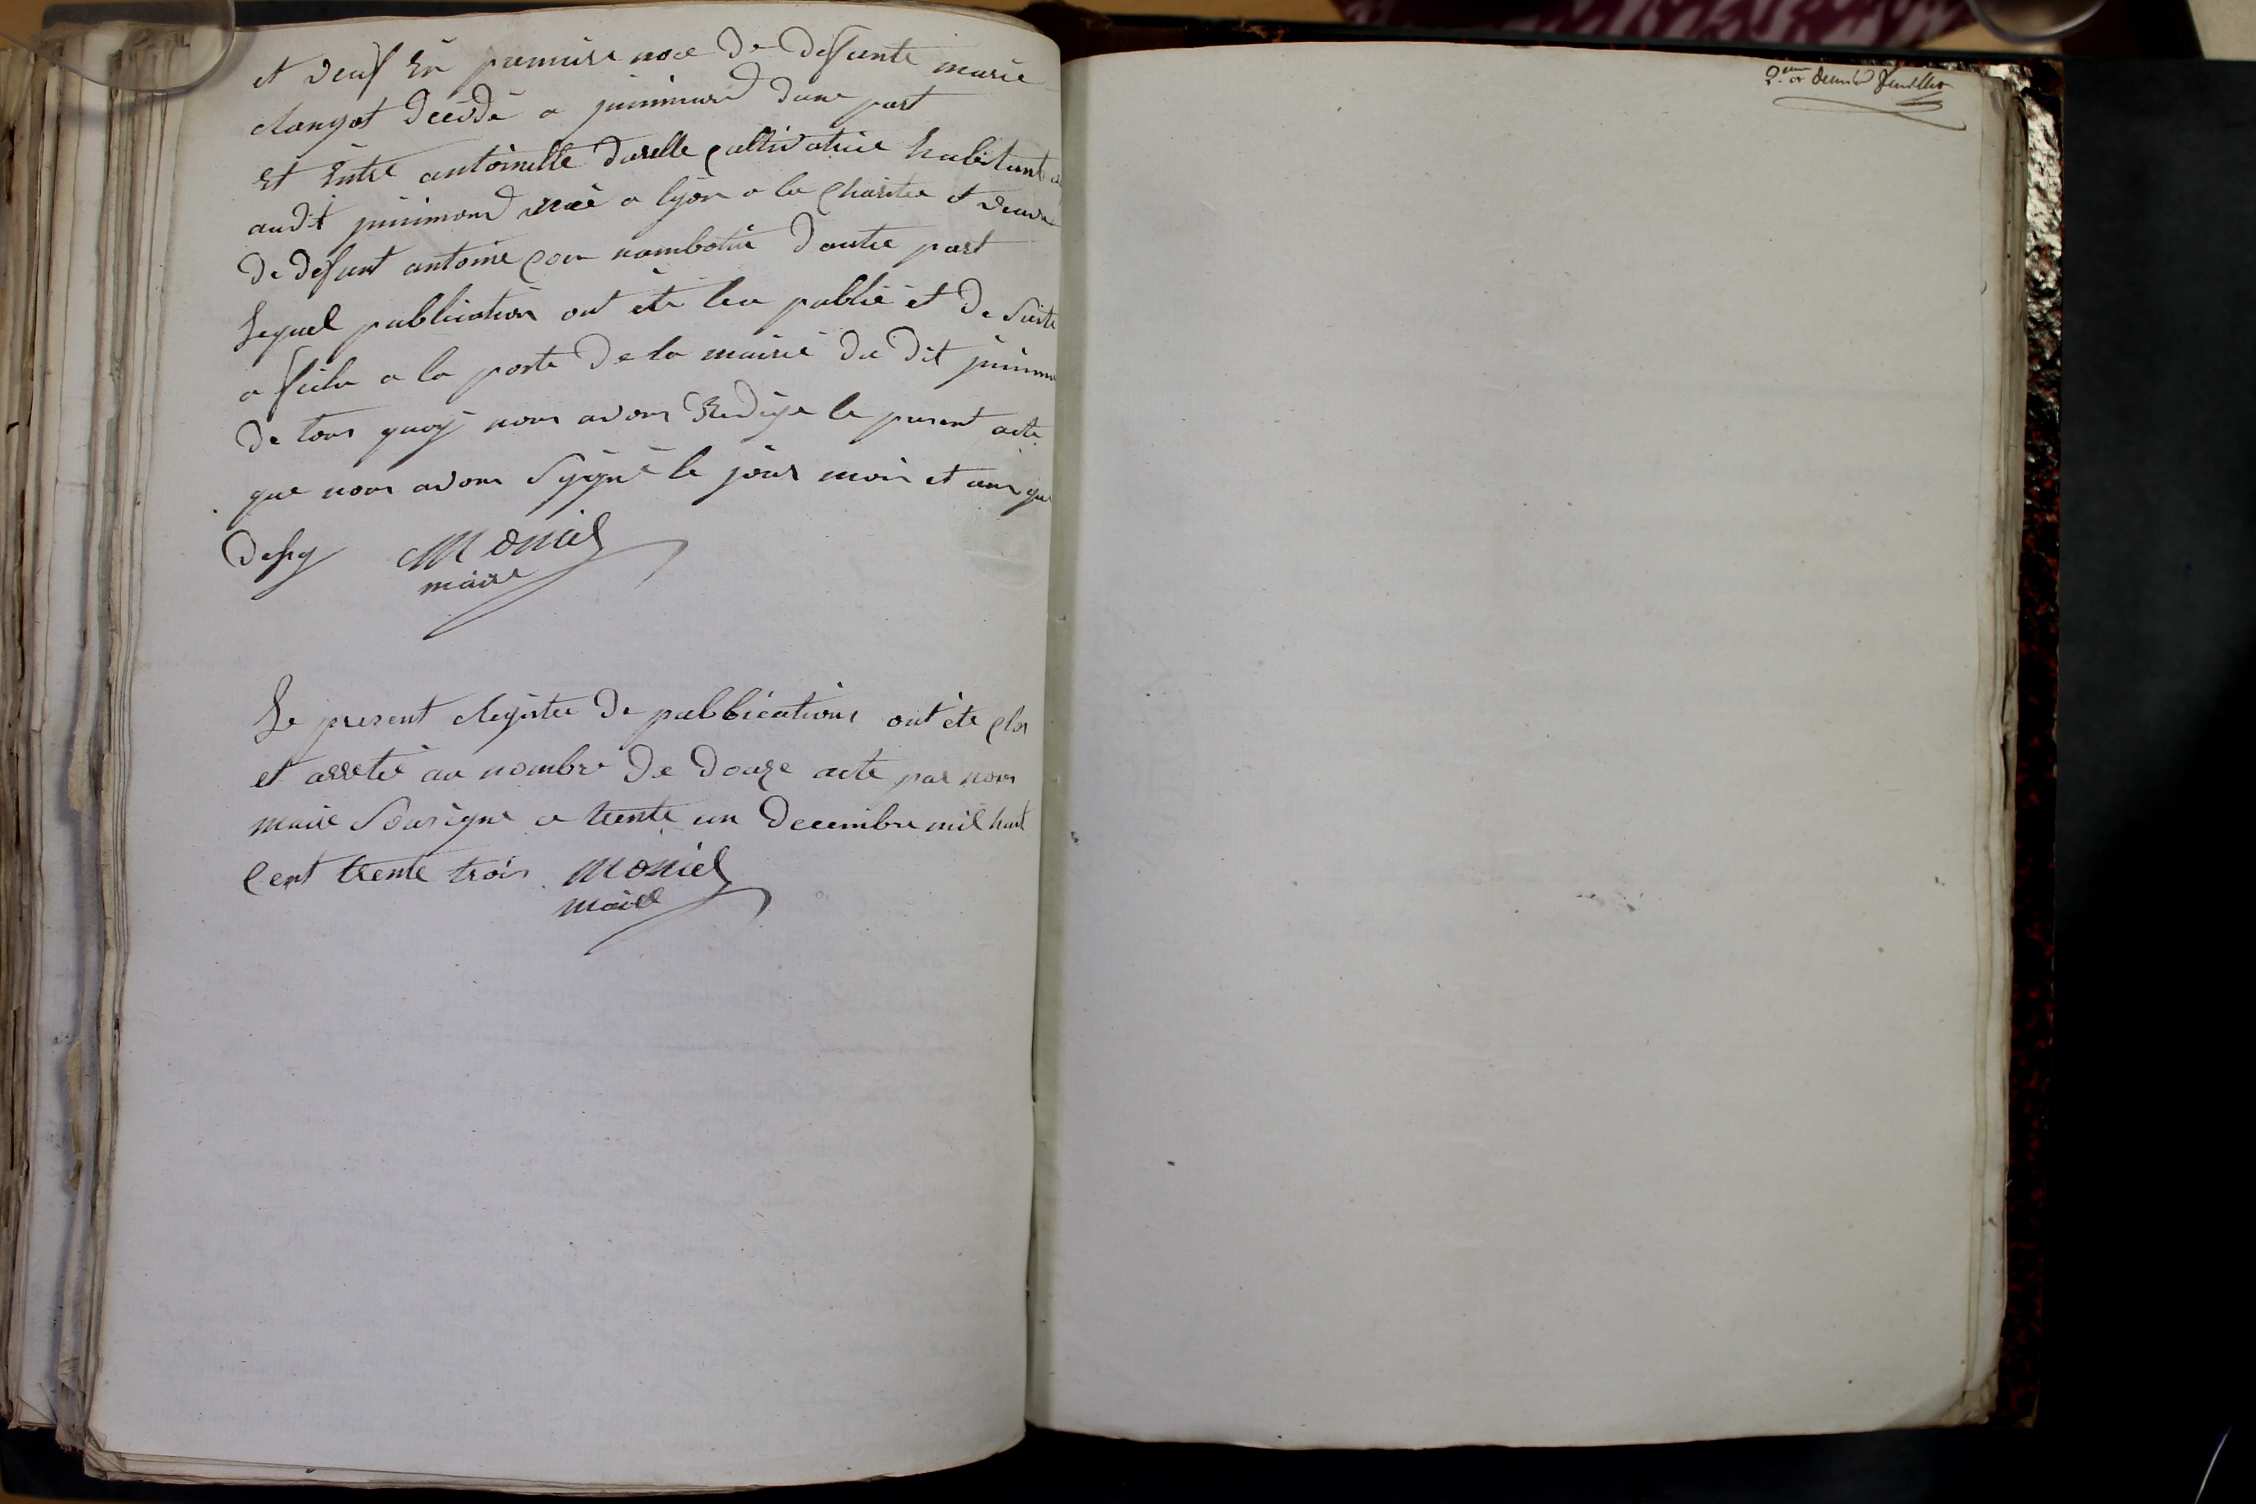 et veuf En premiere noce de defunte marie
décédé a d'une part
Et Entre antoinette cultivatrice habitant
audit née a lyon a la Charité et veuve
de defunt antoine d'autre part
Lequel publication ont été leu publié et de Suite
afiche a la porte de la mairie du dit
de tous quoy nous avons Redige le present acte
que nous avons Signé le jour mois et ans que
Moniel
maire
Le present Registre de publications ont été clos
et arreté au nombre de douze acte par nous
maire Sousigne ce trente un decembre mil huit
Cent trente trois Moniel
maire
2.eme et dernier feuillet